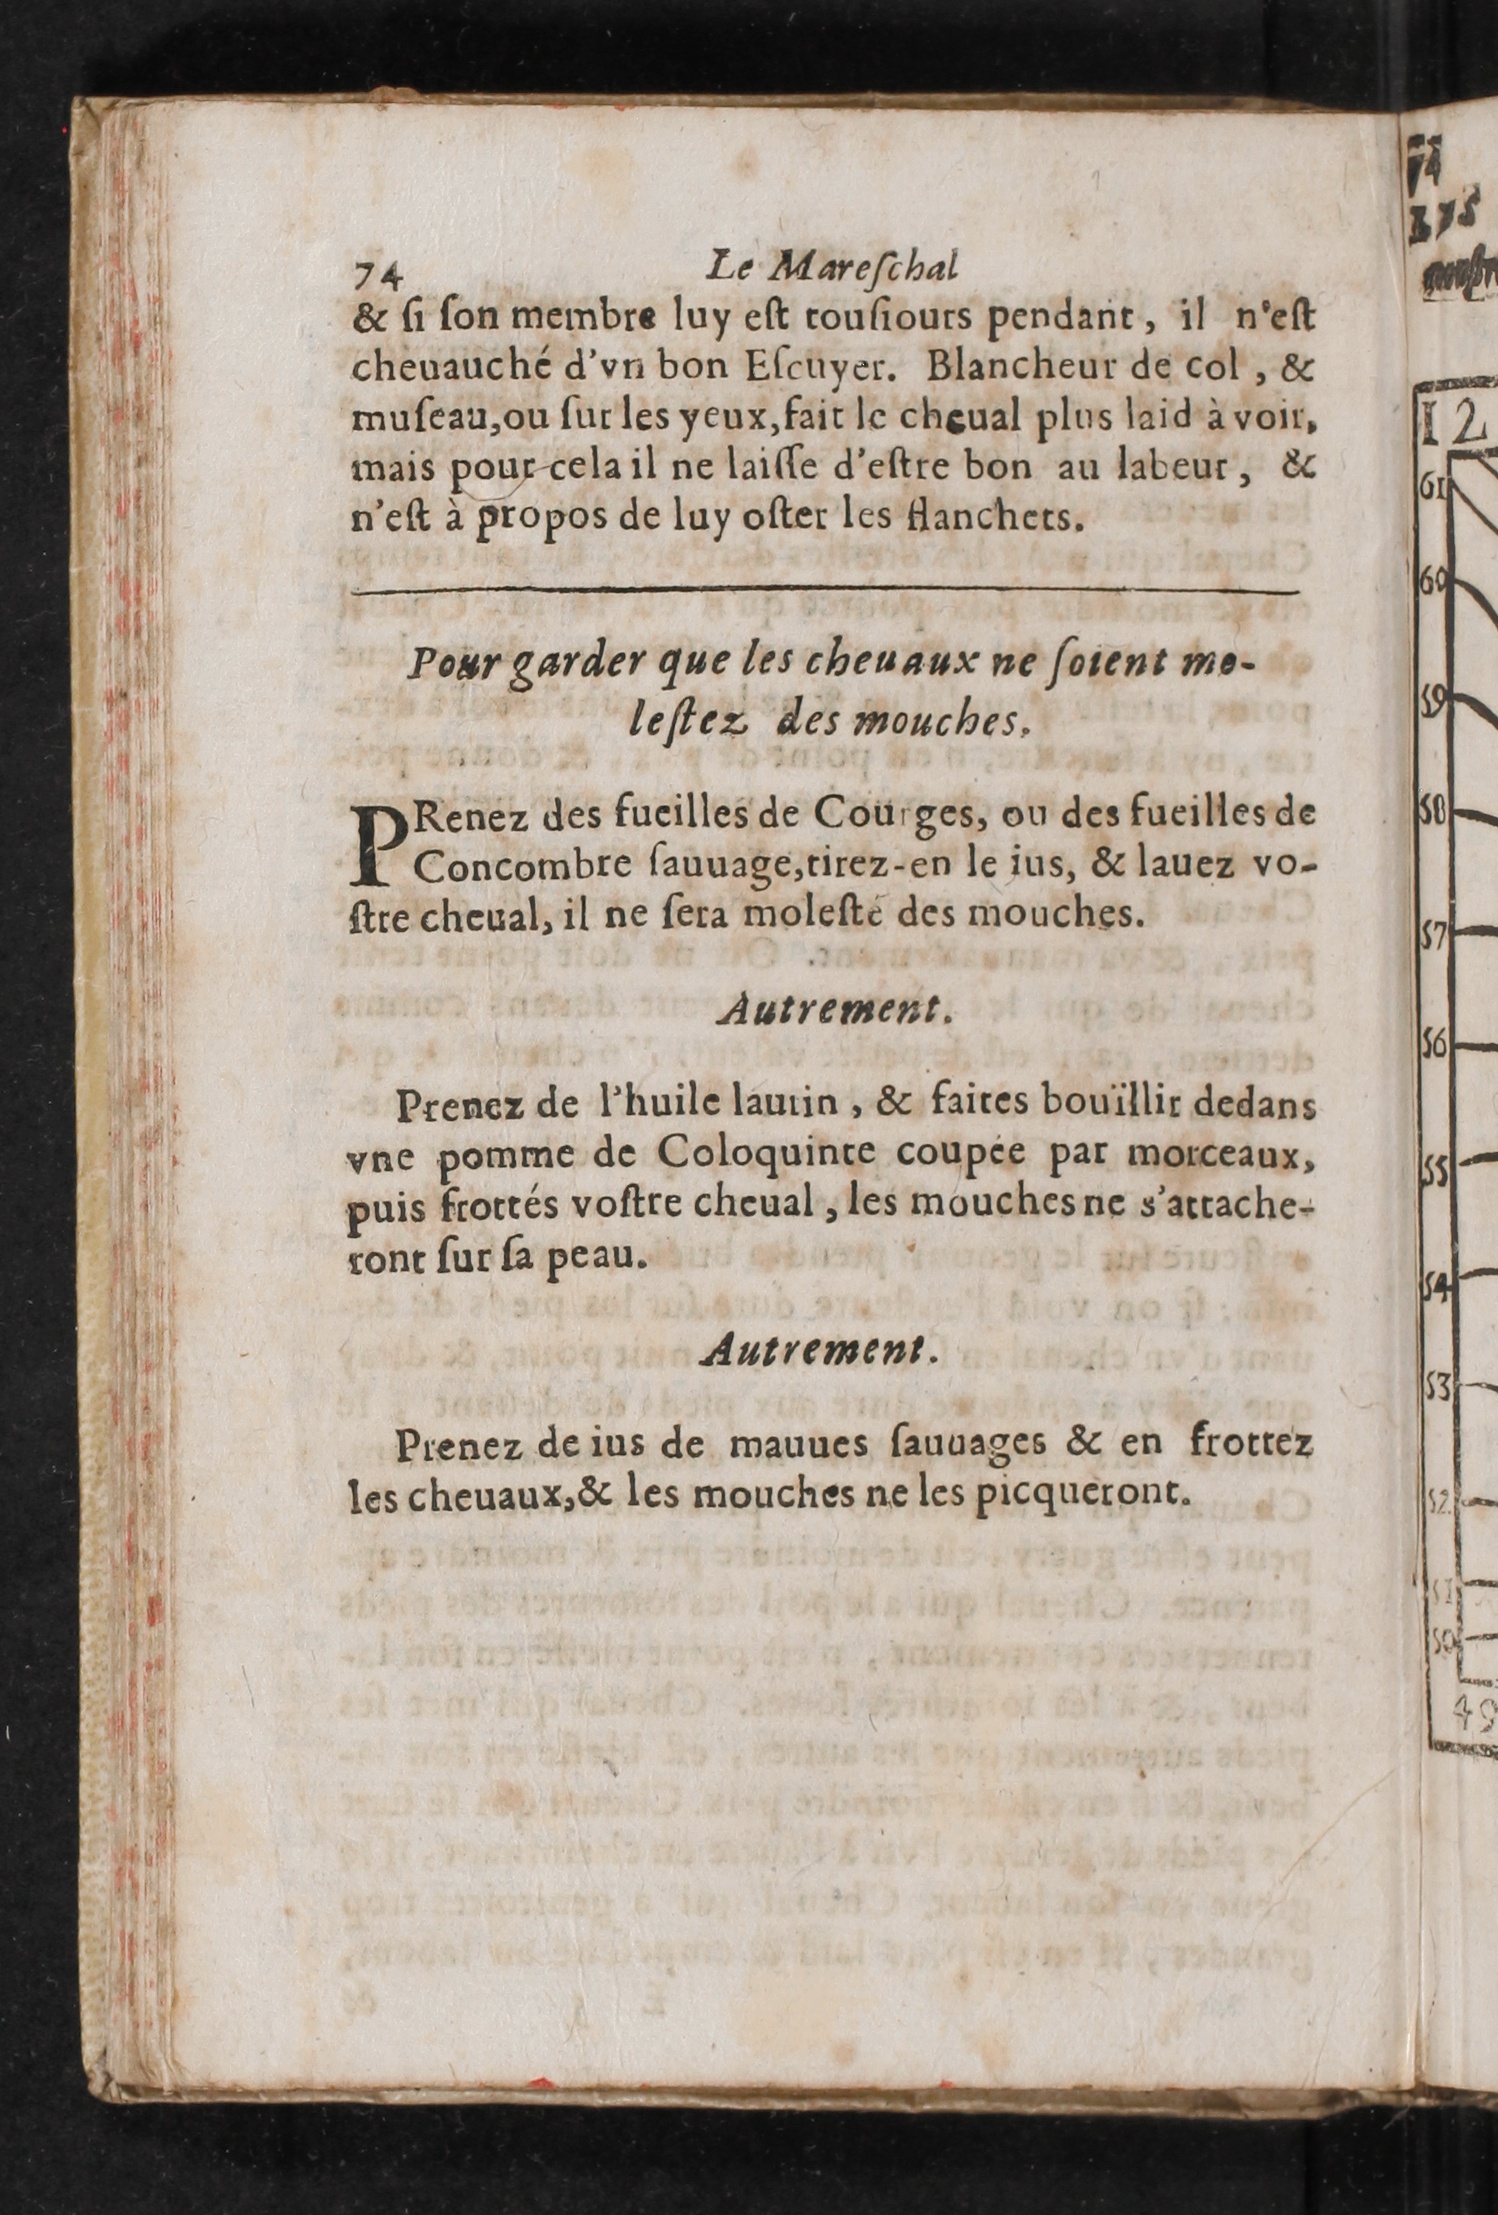 74 Le Mareſchal
& ſi ſon membre luy eſt touſiours pendant, il n'eſt
cheuauché d'vn bon Eſcuyer. Blancheur de col, &
muſeau, ou ſur les yeux, fait le cheual plus laid à voir,
mais pour cela il ne laiſſe d'eſtre bon au labeur, &
n'eſt à propos de luy oſter les flanchets.
Pour garder que les cheuaux ne ſoient mo-
leſtez des mouches.
PRenez des fueilles de Courges, ou des fueilles de
Concombre ſauuage, tirez-en le ius, & lauez vo-
ſtre cheual, il ne ſera moleſté des mouches.
Autrement.
Prenez de l'huile laurin, & faites bouïllir dedans
vne pomme de Coloquinte coupée par morceaux,
puis frottés voſtre cheual, les mouches ne s'attache-
ront ſur ſa peau.
Autrement.
Prenez de ius de mauues ſauuages & en frottez
les cheuaux, & les mouches ne les picqueront.
12
61
60
59
58
57
56
55
54
53
52
51
50
49